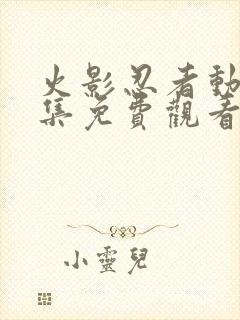 火影忍者動
集免費觀看
小靈兒